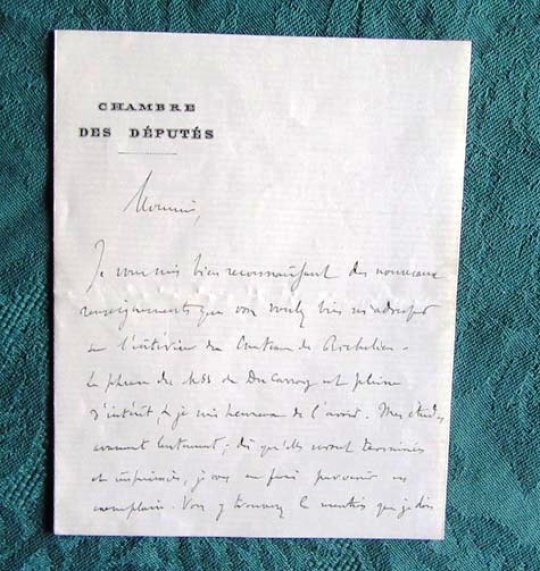 CHAMBRE
DES DÉPUTÉS
Monsieur,
Je vous suis bien reconnaissant des nouveaux
renseignements que vous voulez bien m'adresser
sur l'intérieur du Château de Richelieu.
La phrase du Mss de est pleine
d'intérêt, & je suis heureux de l'avoir. Mes études
avancent lentement ; dès qu'elles seront terminées
et imprimées, je vous en ferai parvenir un
exemplaire. Vous y trouverez la mention que je dois